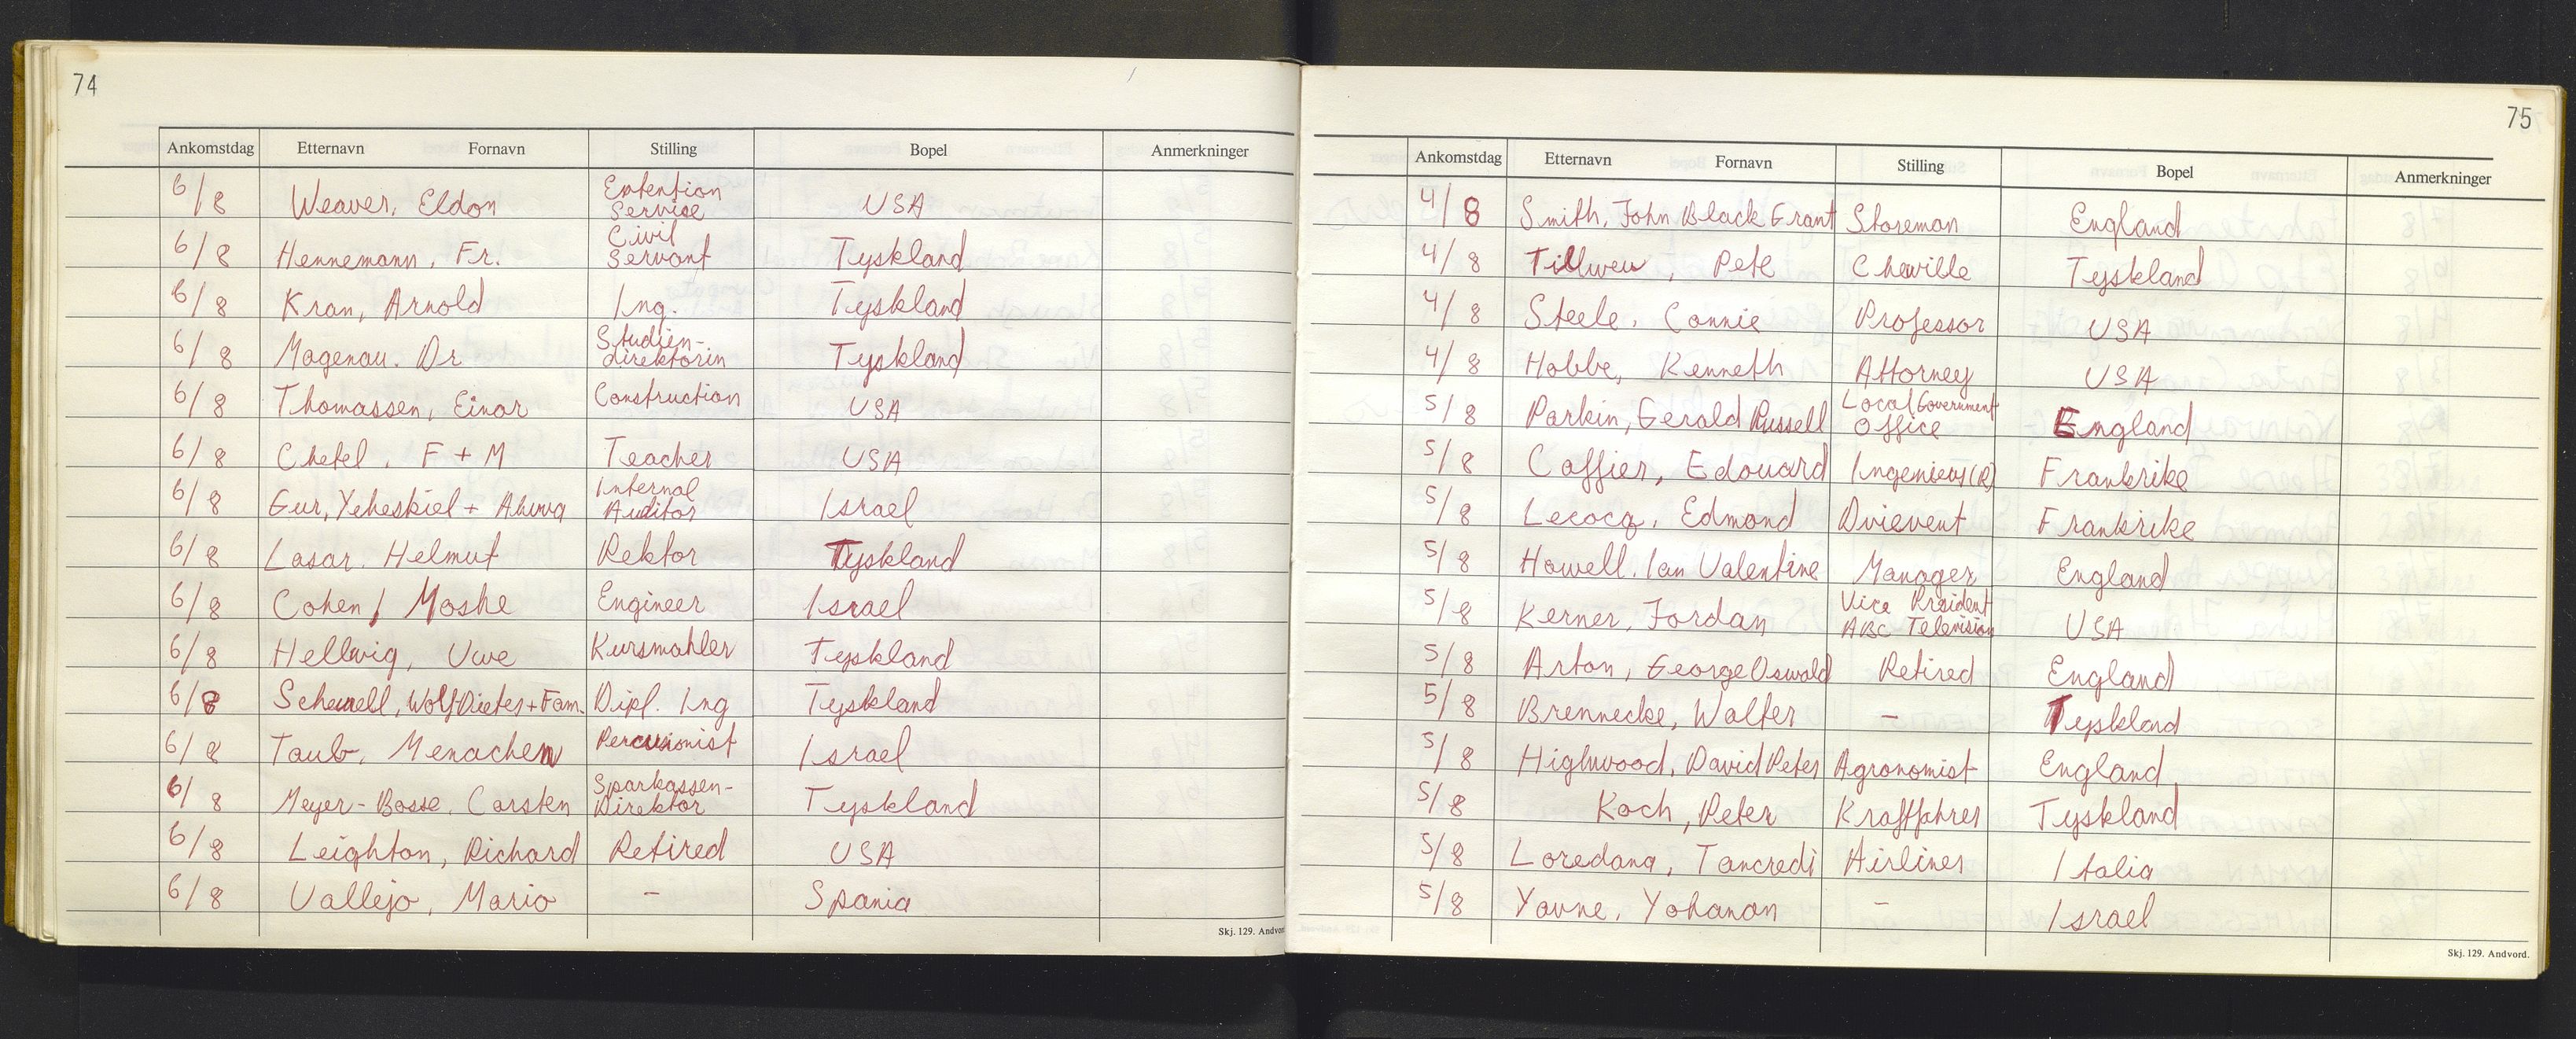 74
Ankomstdag Etternavn Fornavn Stilling Bopel Anmerkninger
6/8 Weaver, Eldon Extention Service USA
6/8 Hennemann, Fr. Civil Servant Tyskland
6/8 Kran, Arnold Ing. Tyskland
6/8 Magenau. Dr Studien-direktorin Tyskland
6/8 Thomassen, Einar Construction USA
6/8 Chetel, F + M Teacher USA
6/8 Gur, Yeheskiel + Ahuva Internal Auditor Israel
6/8 Lasar. Helmut Rektor Tyskland
6/8 Cohen, Moshe Engineer Israel
6/8 Hellwig, Uwe Kursmahler Tyskland
6/8 Wolf Dieter + Fam. Dipl. Ing Tyskland
6/8 Taub, Menachem Percusionist Israel
6/8 Meyer-Bosse. Carsten Sparkassen-Direktor Tyskland
6/8 Leighton, Richard Retired USA
6/8 Vallejo, Mario - Spania
Skj. 129. Andvor
75
Ankomstdag Etternavn Fornavn Stilling Bopel Anmerkninger
4/8 Smith, John Black Grant Storeman England
4/8 Pete Cheville Tyskland
4/8 Steele, Connie Professor USA
4/8 Hobbe, Kenneth Attorney USA
5/8 Parkin, Gerald Russell Local Government Office England
5/8 Caffier, Edouard Ingenieur(R) Frankrike
5/8 Lecocq, Edmond Dvievent Frankrike
5/8 Howell, Ian Valentine Manager England
5/8 Kerner, Jordan Vice Prsident ABC Television USA
5/8 Arton, George Oswald Retired England
5/8 Brennecke, Walter - Tyskland
5/8 Highwood, David Peter Agronomist England
5/8 Koch, Peter Kraftfahrer Tyskland
5/8 Loredana, Tancredi Airlines Italia
5/8 Yavne, Yohanan - Israel
Skj. 129. Andvord.